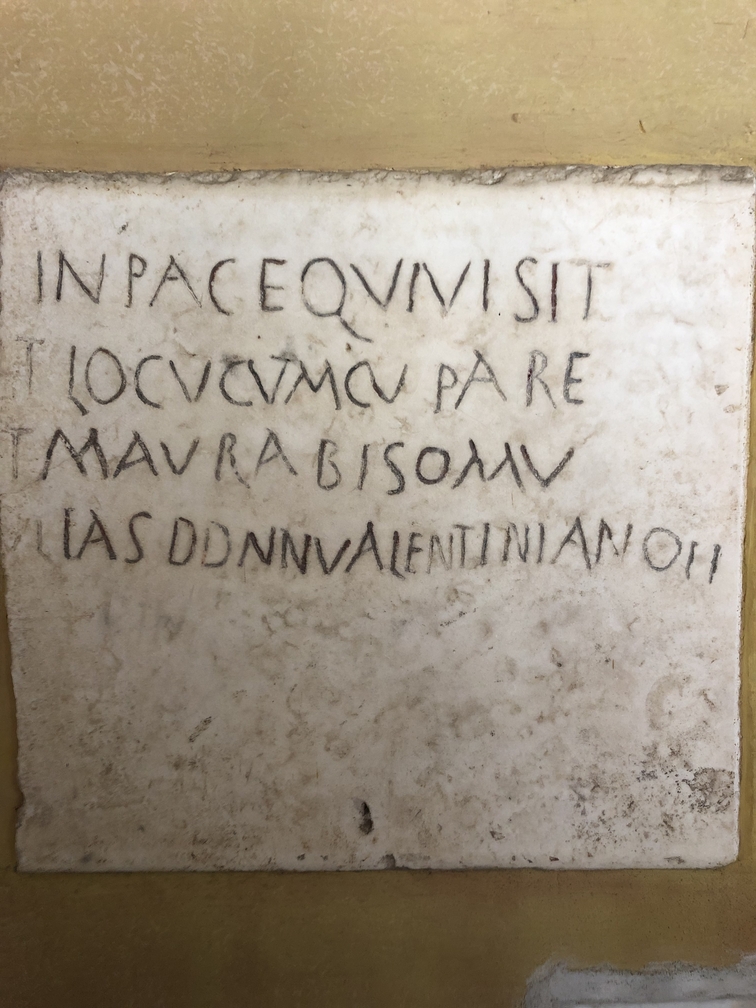 INPACEQVIVISIT
T LOCVCVMCV PARE
TMAVRABISOMV
LIAS DDNNVALENTINIANOII